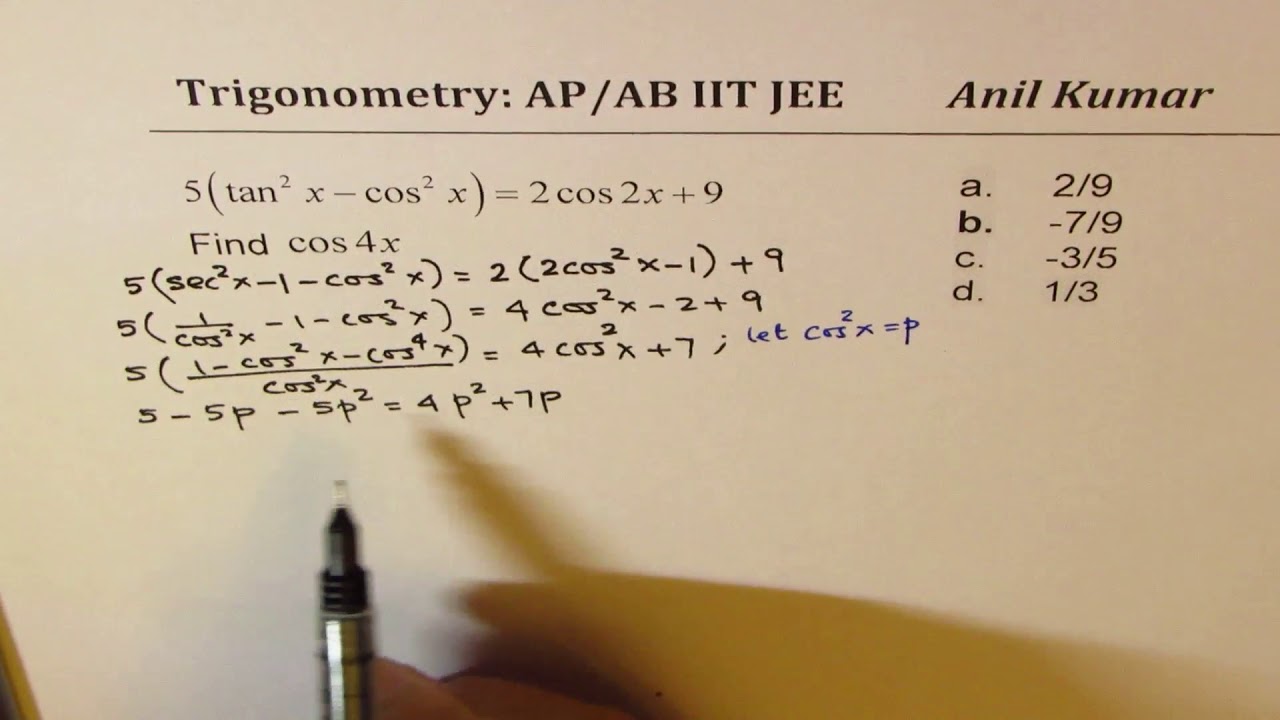 Trigonometry: AP/AB IIT JEE Anil Kumar
5(tan² x − cos² x) = 2 cos 2x + 9
Find cos 4x
a. 2/9
b. -7/9
c. -3/5
d. 1/3
5(sec²x − 1 − cos² x) = 2(2cos²x − 1) + 9
5(1/cos²x − 1 − cos²x) = 4 cos²x − 2 + 9
5((1 − cos²x − cos⁴x)/cos²x) = 4 cos²x + 7 ; let cos²x = p
5 − 5p − 5p² = 4p² + 7p